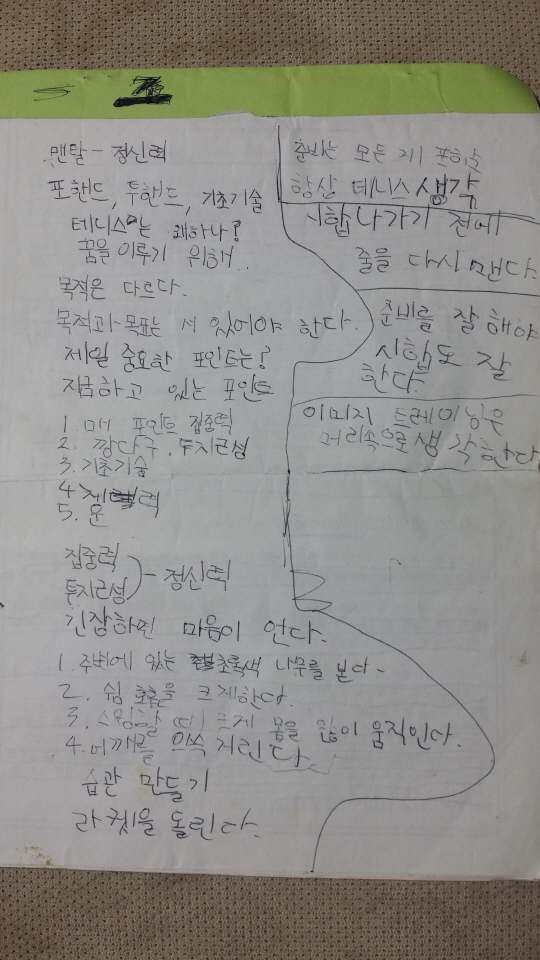 맨탈 - 정신력
포핸드, 투핸드, 기초기술
테니스는 왜하나?
꿈을 이루기 위해..
목적은 다르다.
목적과 목표는 서 있어야 한다.
제일 중요한 포인트는?
지금하고 있는 포인트
1. 매 포인트 집중력
2. 깡다구. 투지근성
3. 기초기술
4. 체력
5. 운
집중력
투지근성 - 정신력
긴장하면 마음이 언다.
1. 주변에 있는 초록색 나무를 본다-
2. 쉼 호흡을 크게한다.
3. 스윙할 때 크게 몸을 많이 움직인다.
4. 어깨를 으쓱 거린다
습관 만들기
라켓을 돌린다.
준비는 모든 게 포함
항상 테니스 생각
시합 나가기 전에
줄을 다시 맨다.
준비를 잘 해야
시합도 잘
한다.
이미지 트레이닝은
머리속으로 생각한다